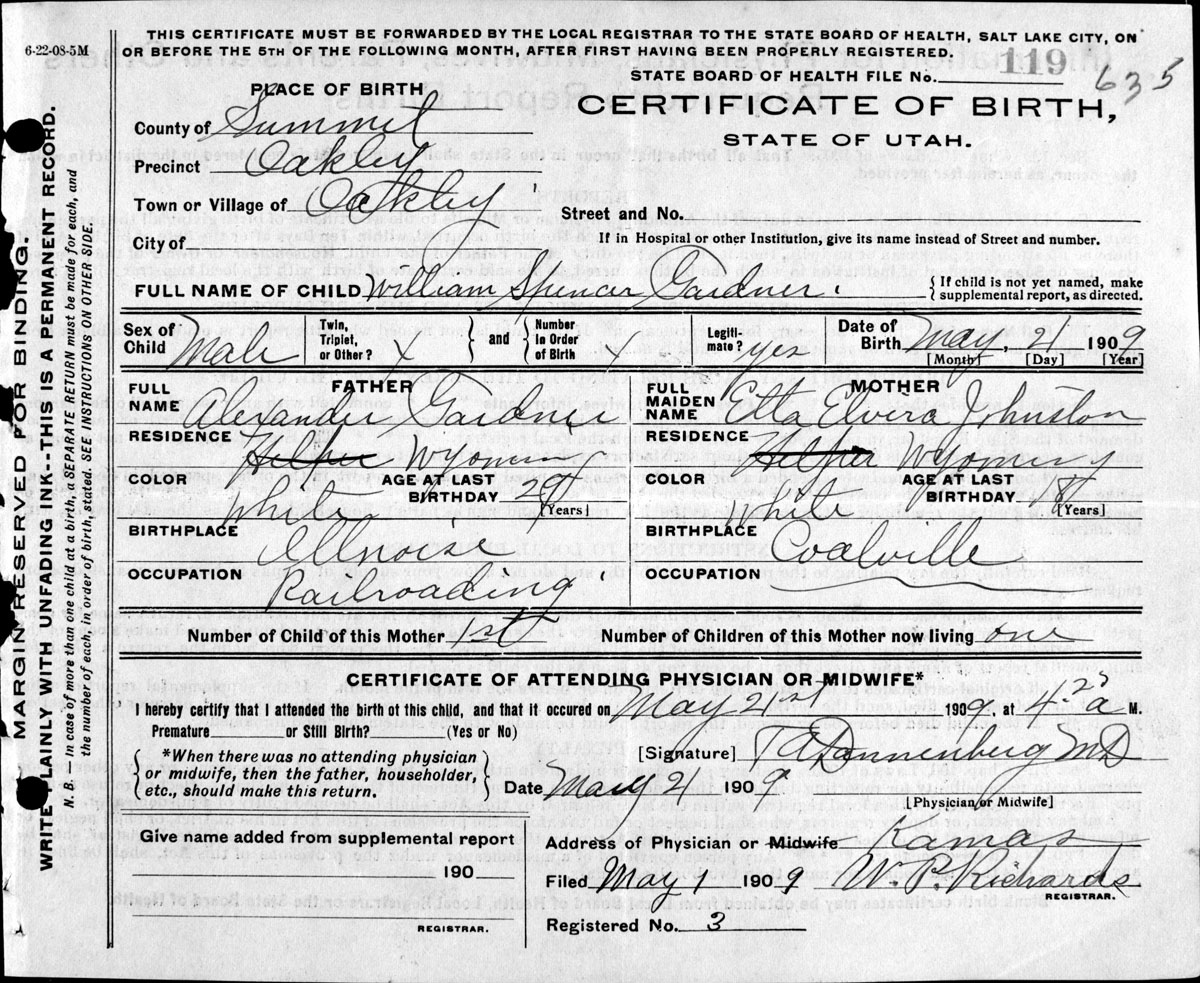 6-22-08-5M
THIS CERTIFICATE MUST BE FORWARDED BY THE LOCAL REGISTRAR TO THE STATE BOARD OF HEALTH, SALT LAKE CITY, ON
OR BEFORE THE 5TH OF THE FOLLOWING MONTH, AFTER FIRST HAVING BEEN PROPERLY REGISTERED.
STATE BOARD OF HEALTH FILE No. 119 635
PLACE OF BIRTH
CERTIFICATE OF BIRTH,
STATE OF UTAH.
County of Summit
Precinct Oakley
Town or Village of Oakley
Street and No.
City of
If in Hospital or other Institution, give its name instead of Street and number.
FULL NAME OF CHILD William Spencer Gardner
{ If child is not yet named, make
supplemental report, as directed.
Sex of Child Male
Twin, Triplet, or Other? X } and { Number in Order of Birth
Legiti-mate? yes
Date of Birth May 21 1909
[Month] [Day] [Year]
FATHER
FULL NAME Alexander Gardner
RESIDENCE Helper Wyoming
COLOR White AGE AT LAST BIRTHDAY 29 [Years]
BIRTHPLACE Illnois
OCCUPATION Railroading
MOTHER
FULL MAIDEN NAME Etta Elvira Johnston
RESIDENCE Helper Wyoming
COLOR White AGE AT LAST BIRTHDAY 18 [Years]
BIRTHPLACE Coalville
OCCUPATION
Number of Child of this Mother 1st Number of Children of this Mother now living one
CERTIFICATE OF ATTENDING PHYSICIAN OR MIDWIFE*
I hereby certify that I attended the birth of this child, and that it occured on May 21 1909, at 4 a M.
Premature or Still Birth? (Yes or No)
{ *When there was no attending physician
or midwife, then the father, householder,
etc., should make this return. }
[Signature] Dannenberg MD
Date May 21 1909
[Physician or Midwife]
Give name added from supplemental report
190
REGISTRAR.
Address of Physician or Midwife Kamas
Filed May 1 1909 W. P. Richards
REGISTRAR.
Registered No. 3
MARGIN RESERVED FOR BINDING.
WRITE PLAINLY WITH UNFADING INK--THIS IS A PERMANENT RECORD.
N. B. In case of more than one child at a birth, a SEPARATE RETURN must be made for each, and
the number of each, in order of birth, stated. SEE INSTRUCTIONS ON OTHER SIDE.